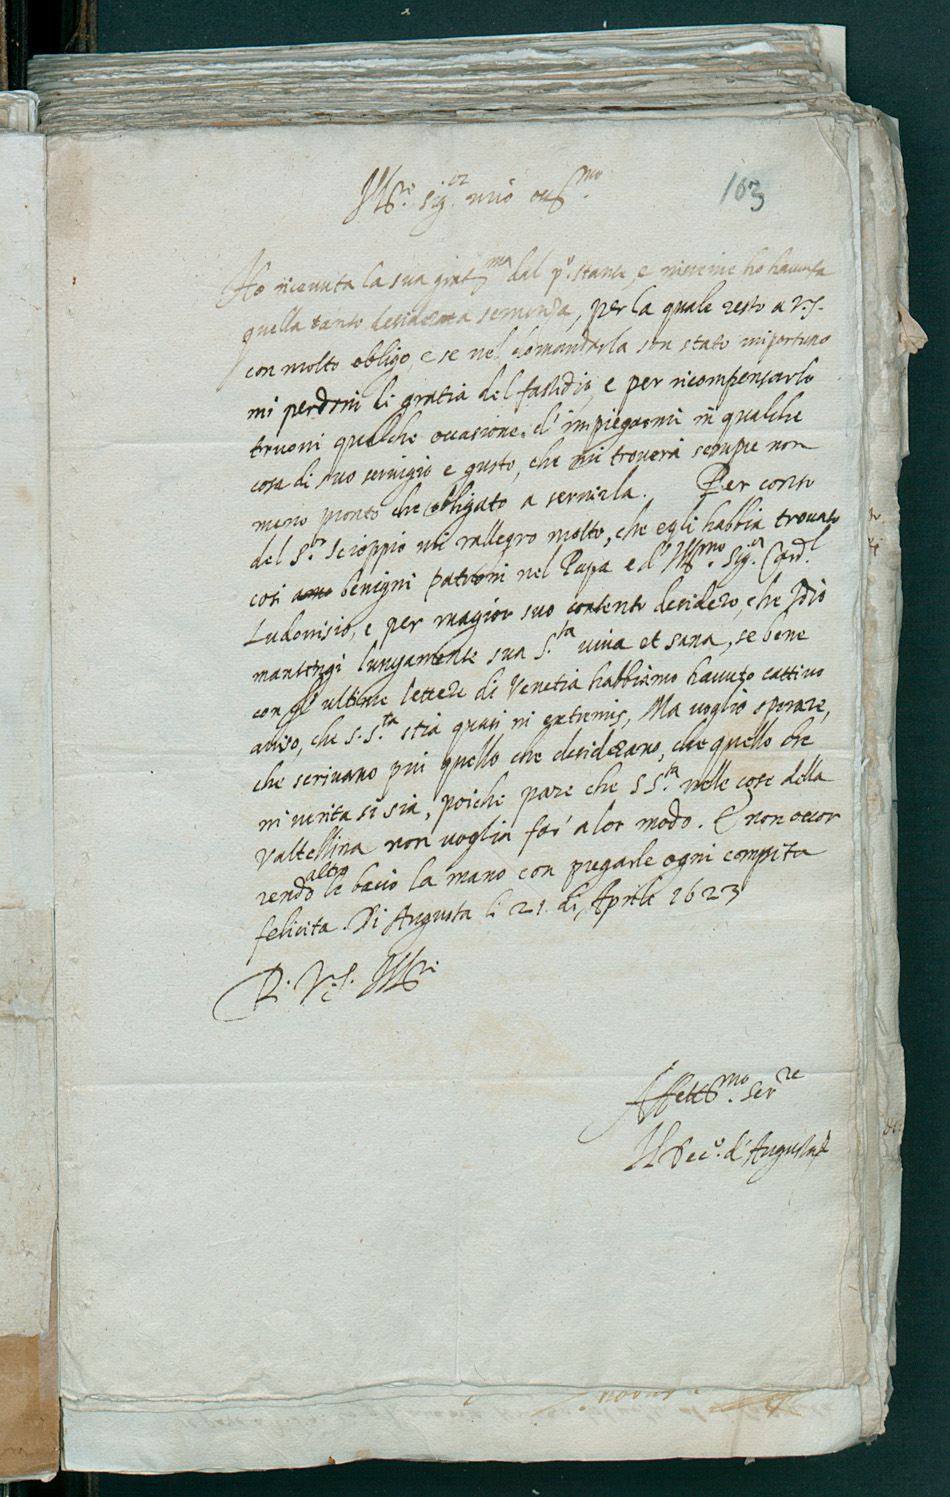 103
Ill.re Sig.or mio oss.mo
Ho ricevuta la sua grat.ma dal p.o stante, e insieme ho havuta
quella tanto desiderata semenza, per la quale resto a V.S.
con molto obligo, e se nel domandarla son stato importuno
mi perdoni di gratia del fastidio, e per ricompensarlo
truovi qualche occasione d'impiegarmi in qualche
cosa di suo servigio e gusto, che mi troverà sempre non
meno pronto che obligato a servirla. Per conto
del S.r Scioppio mi rallegro molto, che egli habbia trovato
così benigni patroni nel Papa e d' Ill.mo Sig.r Card.l
Ludovisio, e per magior suo contento desidero, che Idio
mantengi lungamente sua S.tà viva et sana, se bene
con gl'ultime lettere di Venetia habbiamo havuto cattivo
aviso, che S. S.tà stia quasi in extremis, Ma voglio sperare,
che scrivano piu quello che desiderano, che quello che
in verita si sia, poiche pare che S S.tà nelle cose della
Valtellina non voglia far' a lor modo. E non occor
rendo altro le bacio la mano con pregarle ogni compita
felicita. Di Augusta li 21. di Aprile 1623
Di V.S. Ill.re
Affett.mo Ser.re
Il Vec.o d'Augusta